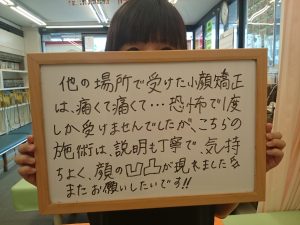 他の場所で受けた小顔矯正
は、痛くて痛くて…恐怖で1度
しか受けませんでしたが、こちらの
施術は、説明も丁寧で、気持
ちよく、顔の凹凸が現れました
またお願いしたいです!!